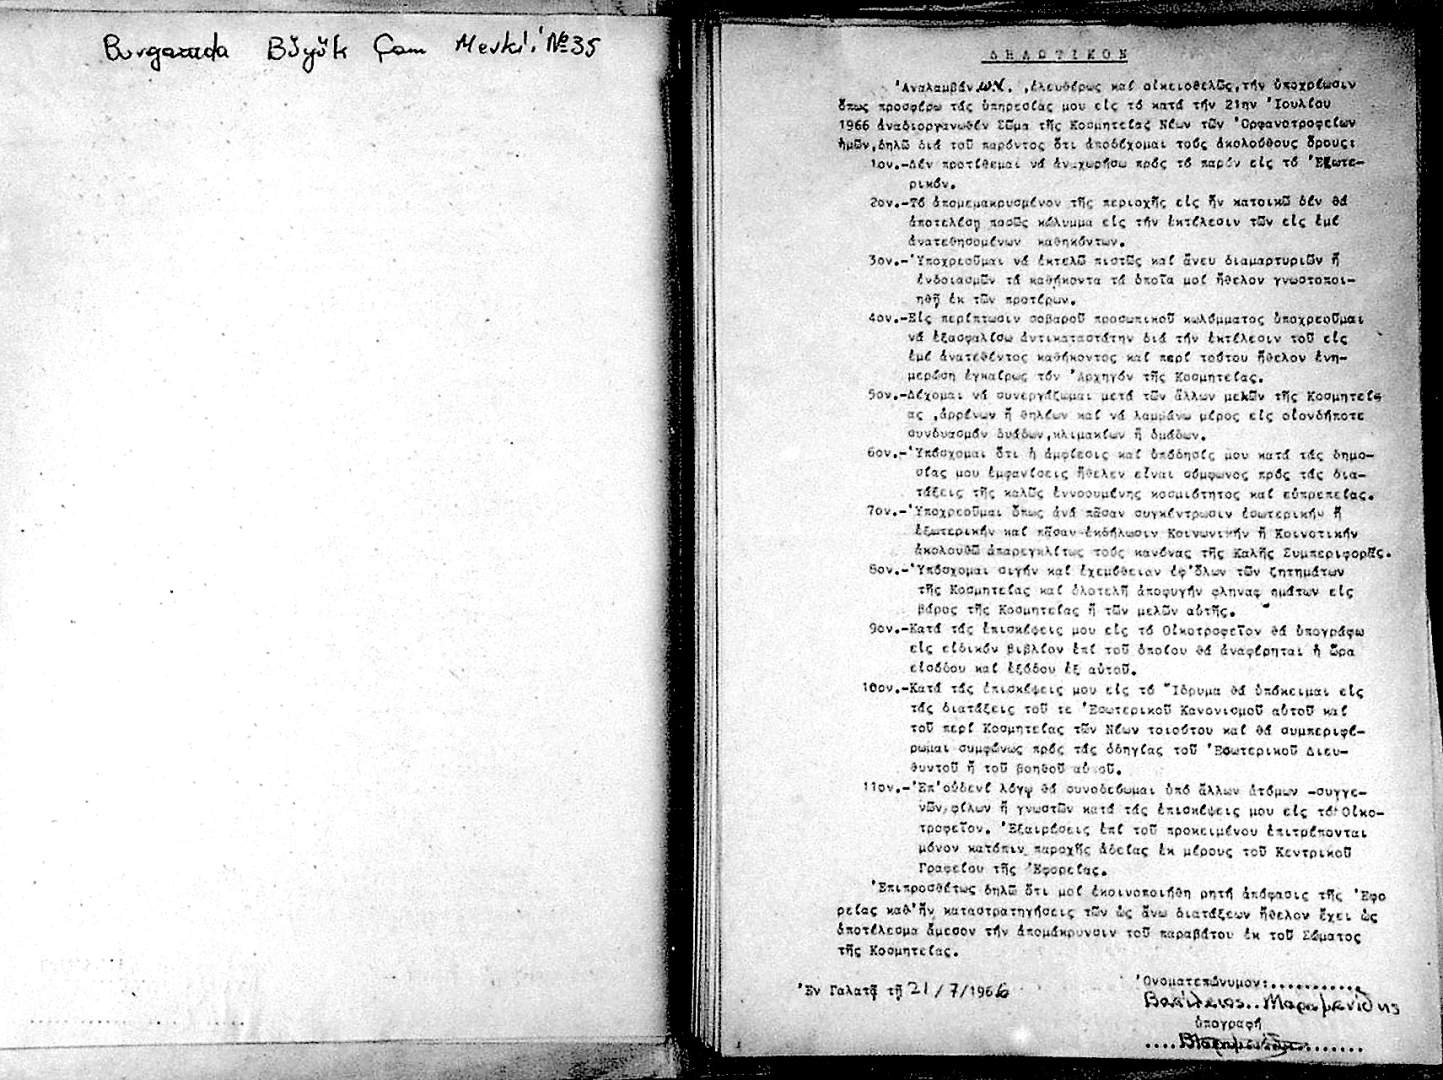 Burgazada Büyük Çam Mevkii №35
ΔΗΛΩΤΙΚΟΝ
Ἀναλαμβάν.ων. ,ἐλευθέρως καί οἰκειοθελῶς,τήν ὑποχρέωσιν
ὅπως προσφέρω τάς ὑπηρεσίας μου εἰς τό κατά τήν 21ην Ἰουλίου
1966 ἀναδιοργανωθέν Σῶμα τῆς Κοσμητείας Νέων τῶν Ὀρφανοτροφείων
ἡμῶν,δηλῶ διά τοῦ παρόντος ὅτι ἀποδέχομαι τούς ἀκολούθους ὅρους:
1ον.-Δέν προτίθεμαι νά ἀναχωρήσω πρός τό παρόν εἰς τό Ἐξωτε-
ρικόν.
2ον.-Τό ἀπομεμακρυσμένον τῆς περιοχῆς εἰς ἥν κατοικῶ δέν θά
ἀποτελέσῃ ποσῶς κώλυμμα εἰς τήν ἐκτέλεσιν τῶν εἰς ἐμέ
ἀνατεθησομένων καθηκόντων.
3ον.-Ὑποχρεοῦμαι νά ἐκτελῶ πιστῶς καί ἄνευ διαμαρτυριῶν ἤ
ἐνδοιασμῶν τά καθήκοντα τά ὁποῖα μοί ἤθελον γνωστοποι-
ηθῇ ἐκ τῶν προτέρων.
4ον.-Εἰς περίπτωσιν σοβαροῦ προσωπικοῦ κωλύμματος ὑποχρεοῦμαι
νά ἐξασφαλίσω ἀντικαταστάτην διά τήν ἐκτέλεσιν τοῦ εἰς
ἐμέ ἀνατεθέντος καθήκοντος καί περί τούτου ἤθελον ἐνη-
μερώσῃ ἐγκαίρως τόν Ἀρχηγόν τῆς Κοσμητείας.
5ον.-Δέχομαι νά συνεργάζωμαι μετά τῶν ἄλλων μελῶν τῆς Κοσμητεί-
ας ,ἀρρένων ἤ θηλέων καί νά λαμβάνω μέρος εἰς οἱονδήποτε
συνδυασμόν δυάδων,κλιμακίων ἤ ὁμάδων.
6ον.-Ὑπόσχομαι ὅτι ἡ ἀμφίεσις καί ὑπόδησίς μου κατά τάς δημο-
σίας μου ἐμφανίσεις ἤθελεν εἶναι σύμφωνος πρός τάς δια-
τάξεις τῆς καλῶς ἐννοουμένης κοσμιότητος καί εὐπρεπείας.
7ον.-Ὑποχρεοῦμαι ὅπως ἀνά πᾶσαν συγκέντρωσιν ἐσωτερικήν ἤ
ἐξωτερικήν καί πᾶσαν ἐκδήλωσιν Κοινωνικήν ἤ Κοινοτικήν
ἀκολουθῶ ἀπαρεγκλίτως τούς κανόνας τῆς Καλῆς Συμπεριφορᾶς.
8ον.-Ὑπόσχομαι σιγήν καί ἐχεμύθειαν ἐφ'ὅλων τῶν ζητημάτων
τῆς Κοσμητείας καί ὁλοτελῆ ἀποφυγήν φληναφημάτων εἰς
βάρος τῆς Κοσμητείας ἤ τῶν μελῶν αὐτῆς.
9ον.-Κατά τάς ἐπισκέψεις μου εἰς τό Οἰκοτροφεῖον θά ὑπογράφω
εἰς εἰδικόν βιβλίον ἐπί τοῦ ὁποίου θά ἀναφέρηται ἡ ὥρα
εἰσόδου καί ἐξόδου ἐξ αὐτοῦ.
10ον.-Κατά τάς ἐπισκέψεις μου εἰς τό Ἵδρυμα θά ὑπόκειμαι εἰς
τάς διατάξεις τοῦ τε Ἐσωτερικοῦ Κανονισμοῦ αὐτοῦ καί
τοῦ περί Κοσμητείας τῶν Νέων τοιούτου καί θά συμπεριφέ-
ρωμαι συμφώνως πρός τάς ὁδηγίας τοῦ Ἐσωτερικοῦ Διευ-
θυντοῦ ἤ τοῦ βοηθοῦ αὐτοῦ.
11ον.-Ἐπ'οὐδενί λόγῳ θά συνοδεύωμαι ὑπό ἄλλων ἀτόμων -συγγε-
νῶν,φίλων ἤ γνωστῶν κατά τάς ἐπισκέψεις μου εἰς τό Οἰκο-
τροφεῖον. Ἐξαιρέσεις ἐπί τοῦ προκειμένου ἐπιτρέπονται
μόνον κατόπιν παροχῆς ἀδείας ἐκ μέρους τοῦ Κεντρικοῦ
Γραφείου τῆς Ἐφορείας.
Ἐπιπροσθέτως δηλῶ ὅτι μοί ἐκοινοποιήθη ρητή ἀπόφασις τῆς Ἐφο
ρείας καθ'ἥν καταστρατηγήσεις τῶν ὡς ἄνω διατάξεων ἤθελον ἔχει ὡς
ἀποτέλεσμα ἄμεσον τήν ἀπομάκρυνσιν τοῦ παραβάτου ἐκ τοῦ Σώματος
τῆς Κοσμητείας.
Ἐν Γαλατᾷ τῇ 21/7/1966
Ὀνοματεπώνυμον:...........
Βασίλειος..Μαραμενίδης
ὑπογραφή